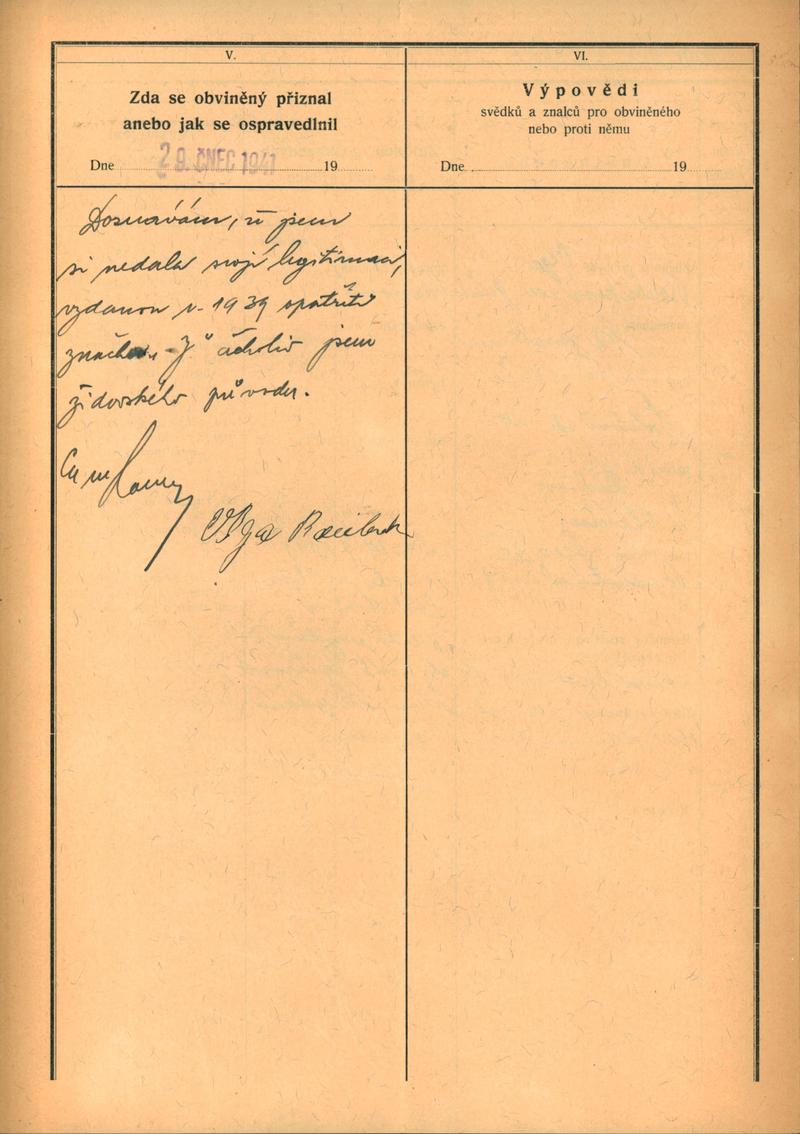 V.
Zda se obviněný přiznal
anebo jak se ospravedlnil
Dne 29. ČNEC 1941 19
Doznávám, že jsem
si nedala svoji legitimaci,
vydanou v r. 1939 opatřiti
značkou „J" ačkoliv jsem
židovského původu.
Olga
VI.
Výpovědi
svědků a znalců pro obviněného
nebo proti němu
Dne 19